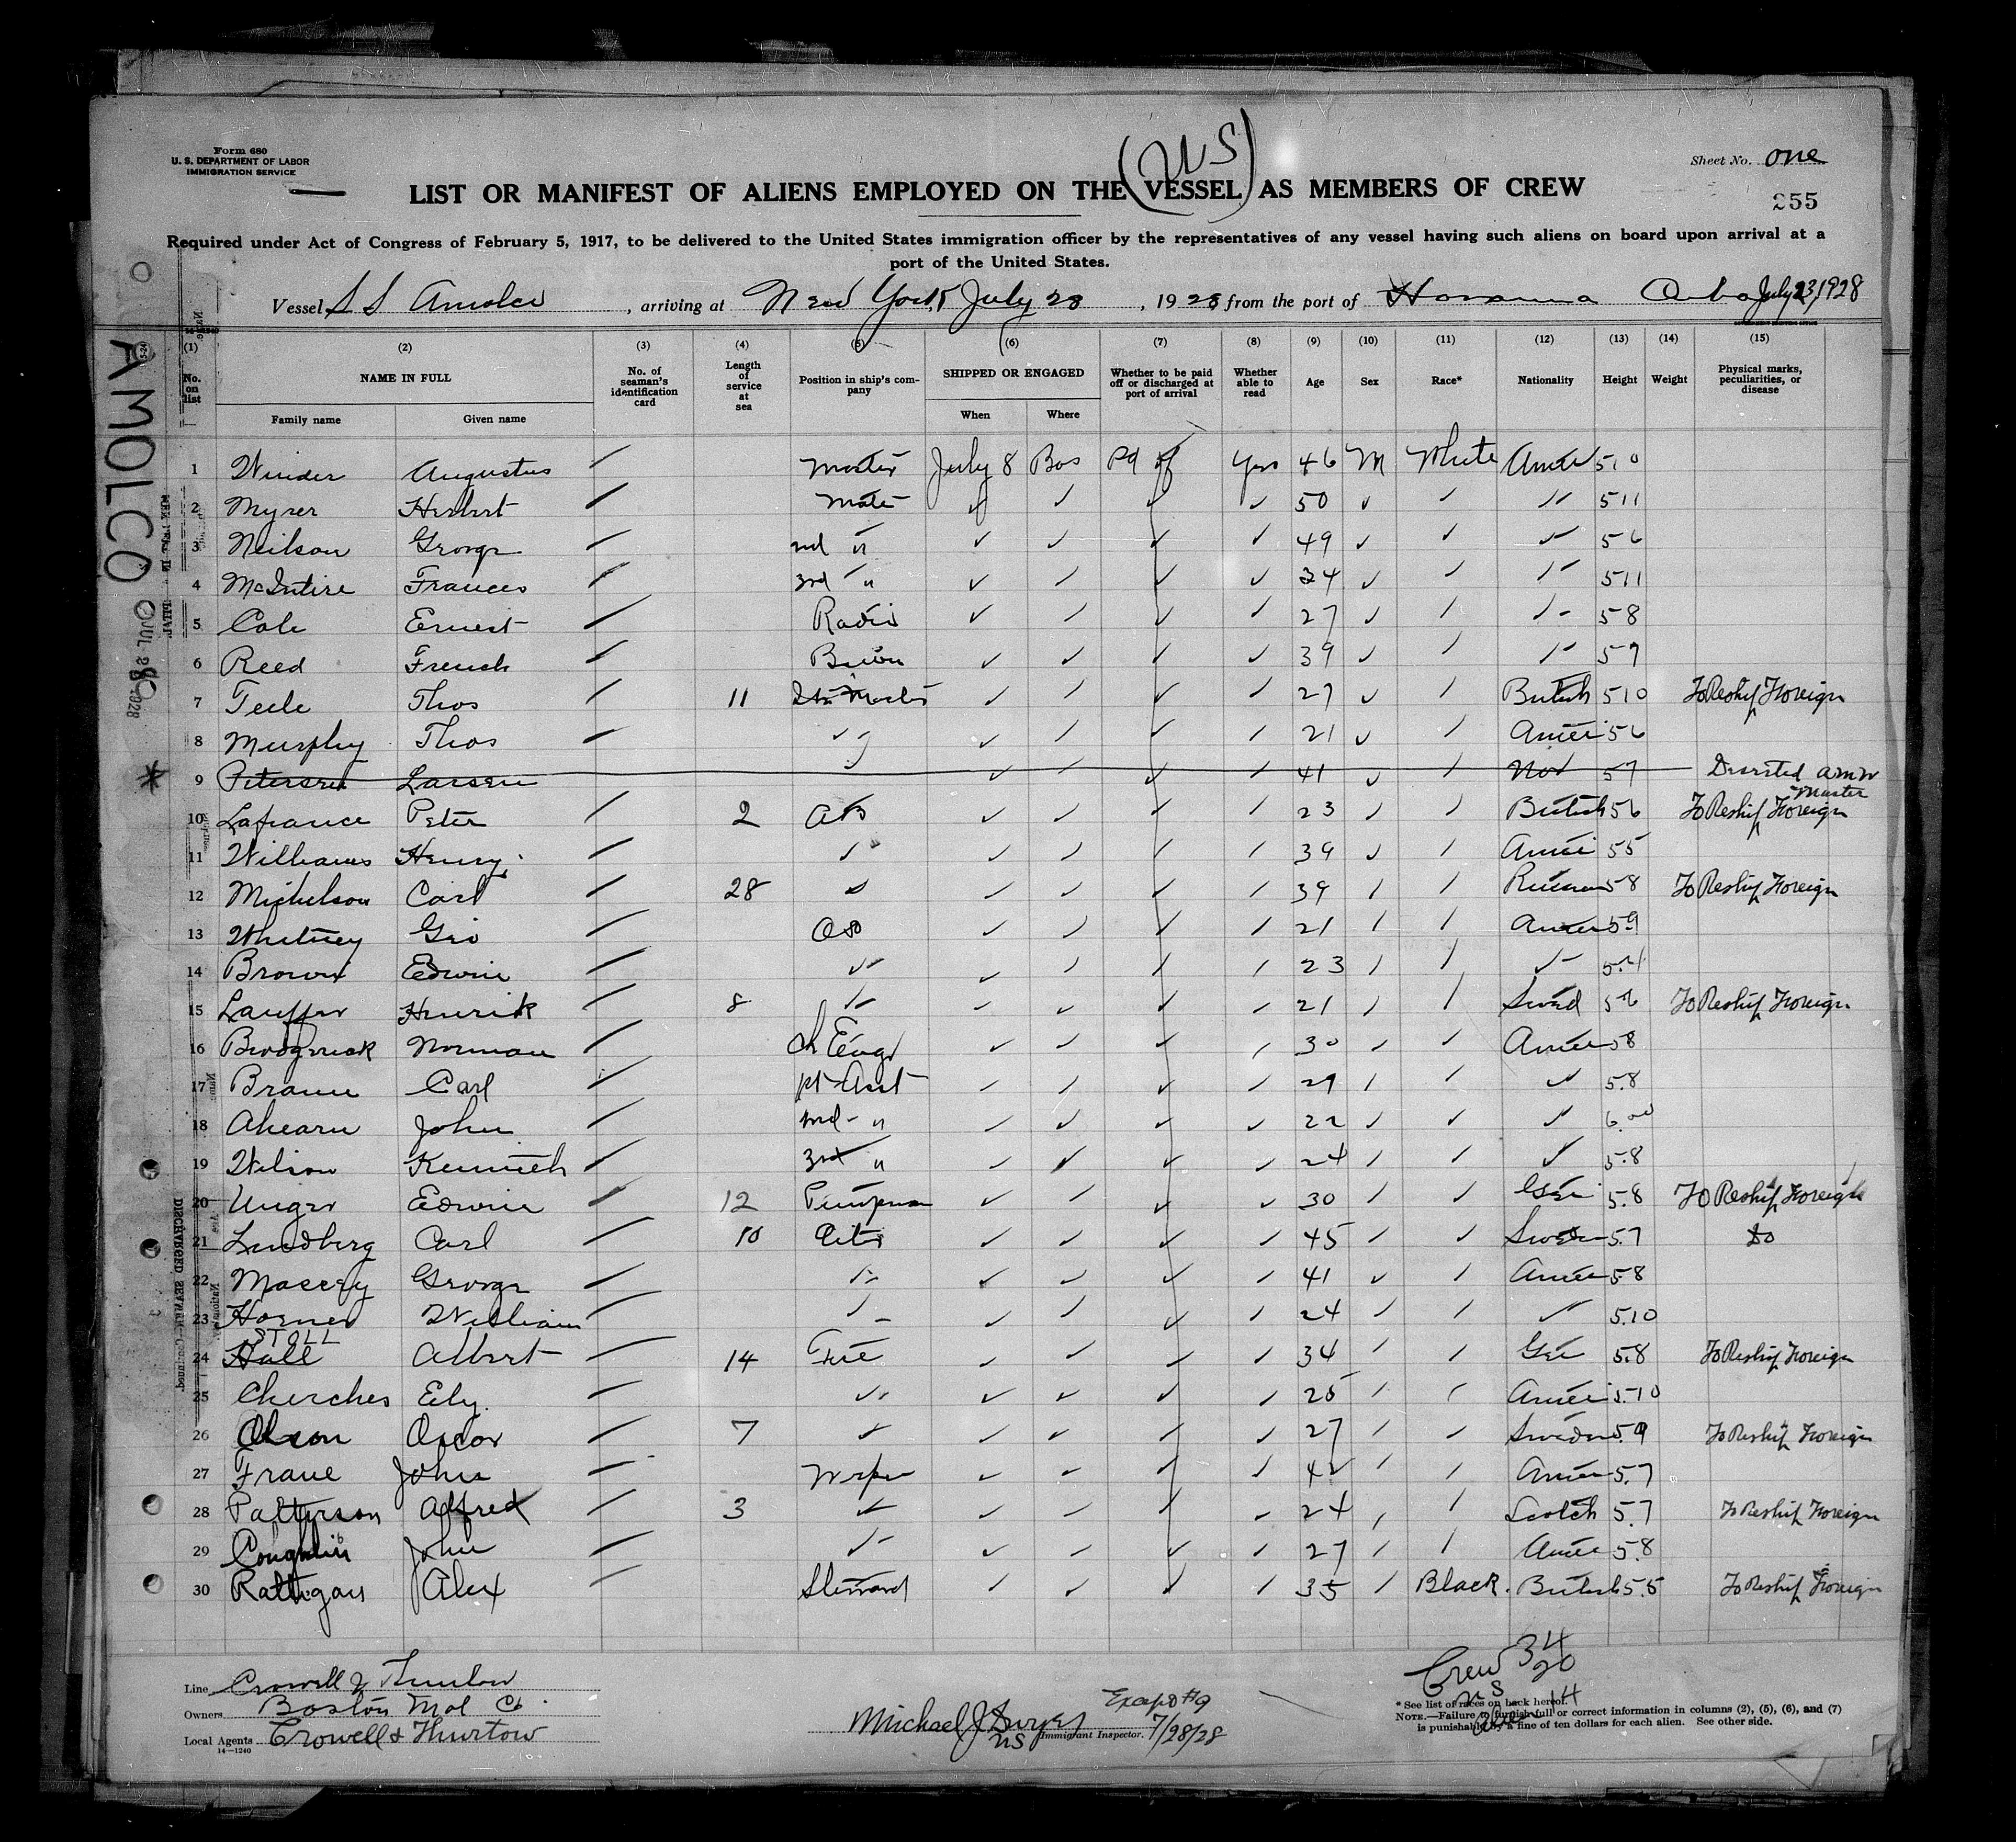 Form 680
U. S. DEPARTMENT OF LABOR
IMMIGRATION SERVICE
(US)
Sheet No. one
LIST OR MANIFEST OF ALIENS EMPLOYED ON THE VESSEL AS MEMBERS OF CREW
255
Required under Act of Congress of February 5, 1917, to be delivered to the United States immigration officer by the representatives of any vessel having such aliens on board upon arrival at a
port of the United States.
Vessel S S , arriving at New York July 28 , 1928 from the port of July 23, 1928
AMOLCO
JUL 28 1928
(1) (2) (3) (4) (5) (6) (7) (8) (9) (10) (11) (12) (13) (14) (15)
No. on list NAME IN FULL No. of seaman's identification card Length of service at sea Position in ship's company SHIPPED OR ENGAGED Whether to be paid off or discharged at port of arrival Whether able to read Age Sex Race* Nationality Height Weight Physical marks, peculiarities, or disease
Family name Given name When Where
1 Winder Augustus Master July 8 Bos Pd off Yes 46 M White Amer 5.10
2 Myrer Herbert Mate 50 511
3 Neilson George 2nd " 49 56
4 McIntire Frances 3rd " 34 511
5 Cole Ernest Radio 27 58
6 Reed French 39 57
7 Teele Thos 11 27 British 510 To Reship Foreign
8 Murphy Thos 21 Amer 56
9 Petersen Larsen 41 57 Deserted
Master
10 Lafrance Peter 2 AB 23 British 56 To Reship Foreign
11 Williams Henry 39 Amer 55
12 Michelson Carl 28 39 Russian 58 To Reship Foreign
13 Whitney Geo OS 21 Amer 59
14 Brown Edwin 23
15 Lauffer Henrik 8 21 Swed 56 To Reship Foreign
16 Norman Ch Engr 30 Amer 58
17 Braun Carl 1st Asst 29 5.8
18 Ahearn John 2nd " 22 6.00
19 Wilson Kenneth 3rd " 24 5.8
20 Unger Edwin 12 Pumpman 30 Ger 5.8 To Reship Foreign
21 Lundberg Carl 10 45 Sweden 5.7 Do
22 Massey George 41 Amer 58
23 Horner William 24 5.10
STOLL
24 Hall Albert 14 Fire 34 Ger 5.8 To Reship Foreign
25 Cherches Ely. 25 Amer 5.10
26 Olson Oscar 7 27 Sweden 5.9 To Reship Foreign
27 John Wiper 42 Amer 5.7
28 Patterson Alfred 3 24 Scotch 5.7 To Reship Foreign
29 Coughlin John 27 Amer 5.8
30 Rattigan Alex Steward 35 Black. British 5.5 To Reship Foreign
Line Crowell & Thurlow
Owners Boston Mol Co.
Local Agents Crowell & Thurlow
14—1240
Except #9
Michael J. Dwyer
US Immigrant Inspector. 7/28/28
Crew 34
US 20
Alien 14
* See list of races on back hereof.
NOTE.—Failure to furnish full or correct information in columns (2), (5), (6), and (7)
is punishable by a fine of ten dollars for each alien. See other side.